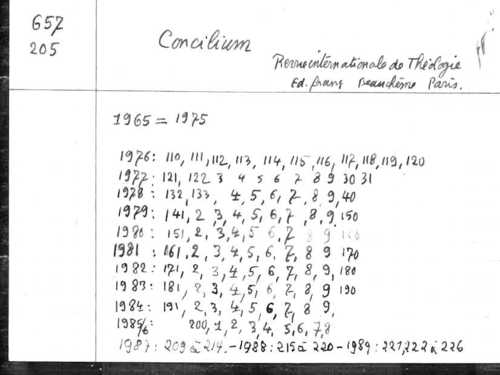 657
205
Concilium
Revue internationale de Théologie
Ed. franç Beauchêne Paris.
1965 = 1975
1976: 110, 111, 112, 113, 114, 115, 116, 117, 118, 119, 120
1977: 121, 122 3 4 5 6 7 8 9 30 31
1978: 132, 133, 4, 5, 6, 7, 8 9, 40
1979: 141, 2, 3, 4, 5, 6, 7, 8, 9, 150
1980: 151, 2, 3, 4, 5, 6, 7 8 9 160
1981: 161, 2, 3, 4, 5, 6, 7, 8 9 170
1982: 171, 2, 3, 4, 5, 6, 7, 8 9, 180
1983: 181, 2, 3, 4, 5, 6, 7, 8, 9 190
1984: 191, 2, 3, 4, 5, 6, 7, 8 9,
1985/6: 200, 1, 2, 3, 4, 5, 6, 7, 8
1987: 209 à 214. - 1988: 215 à 220 - 1989: 221, 222 à 226